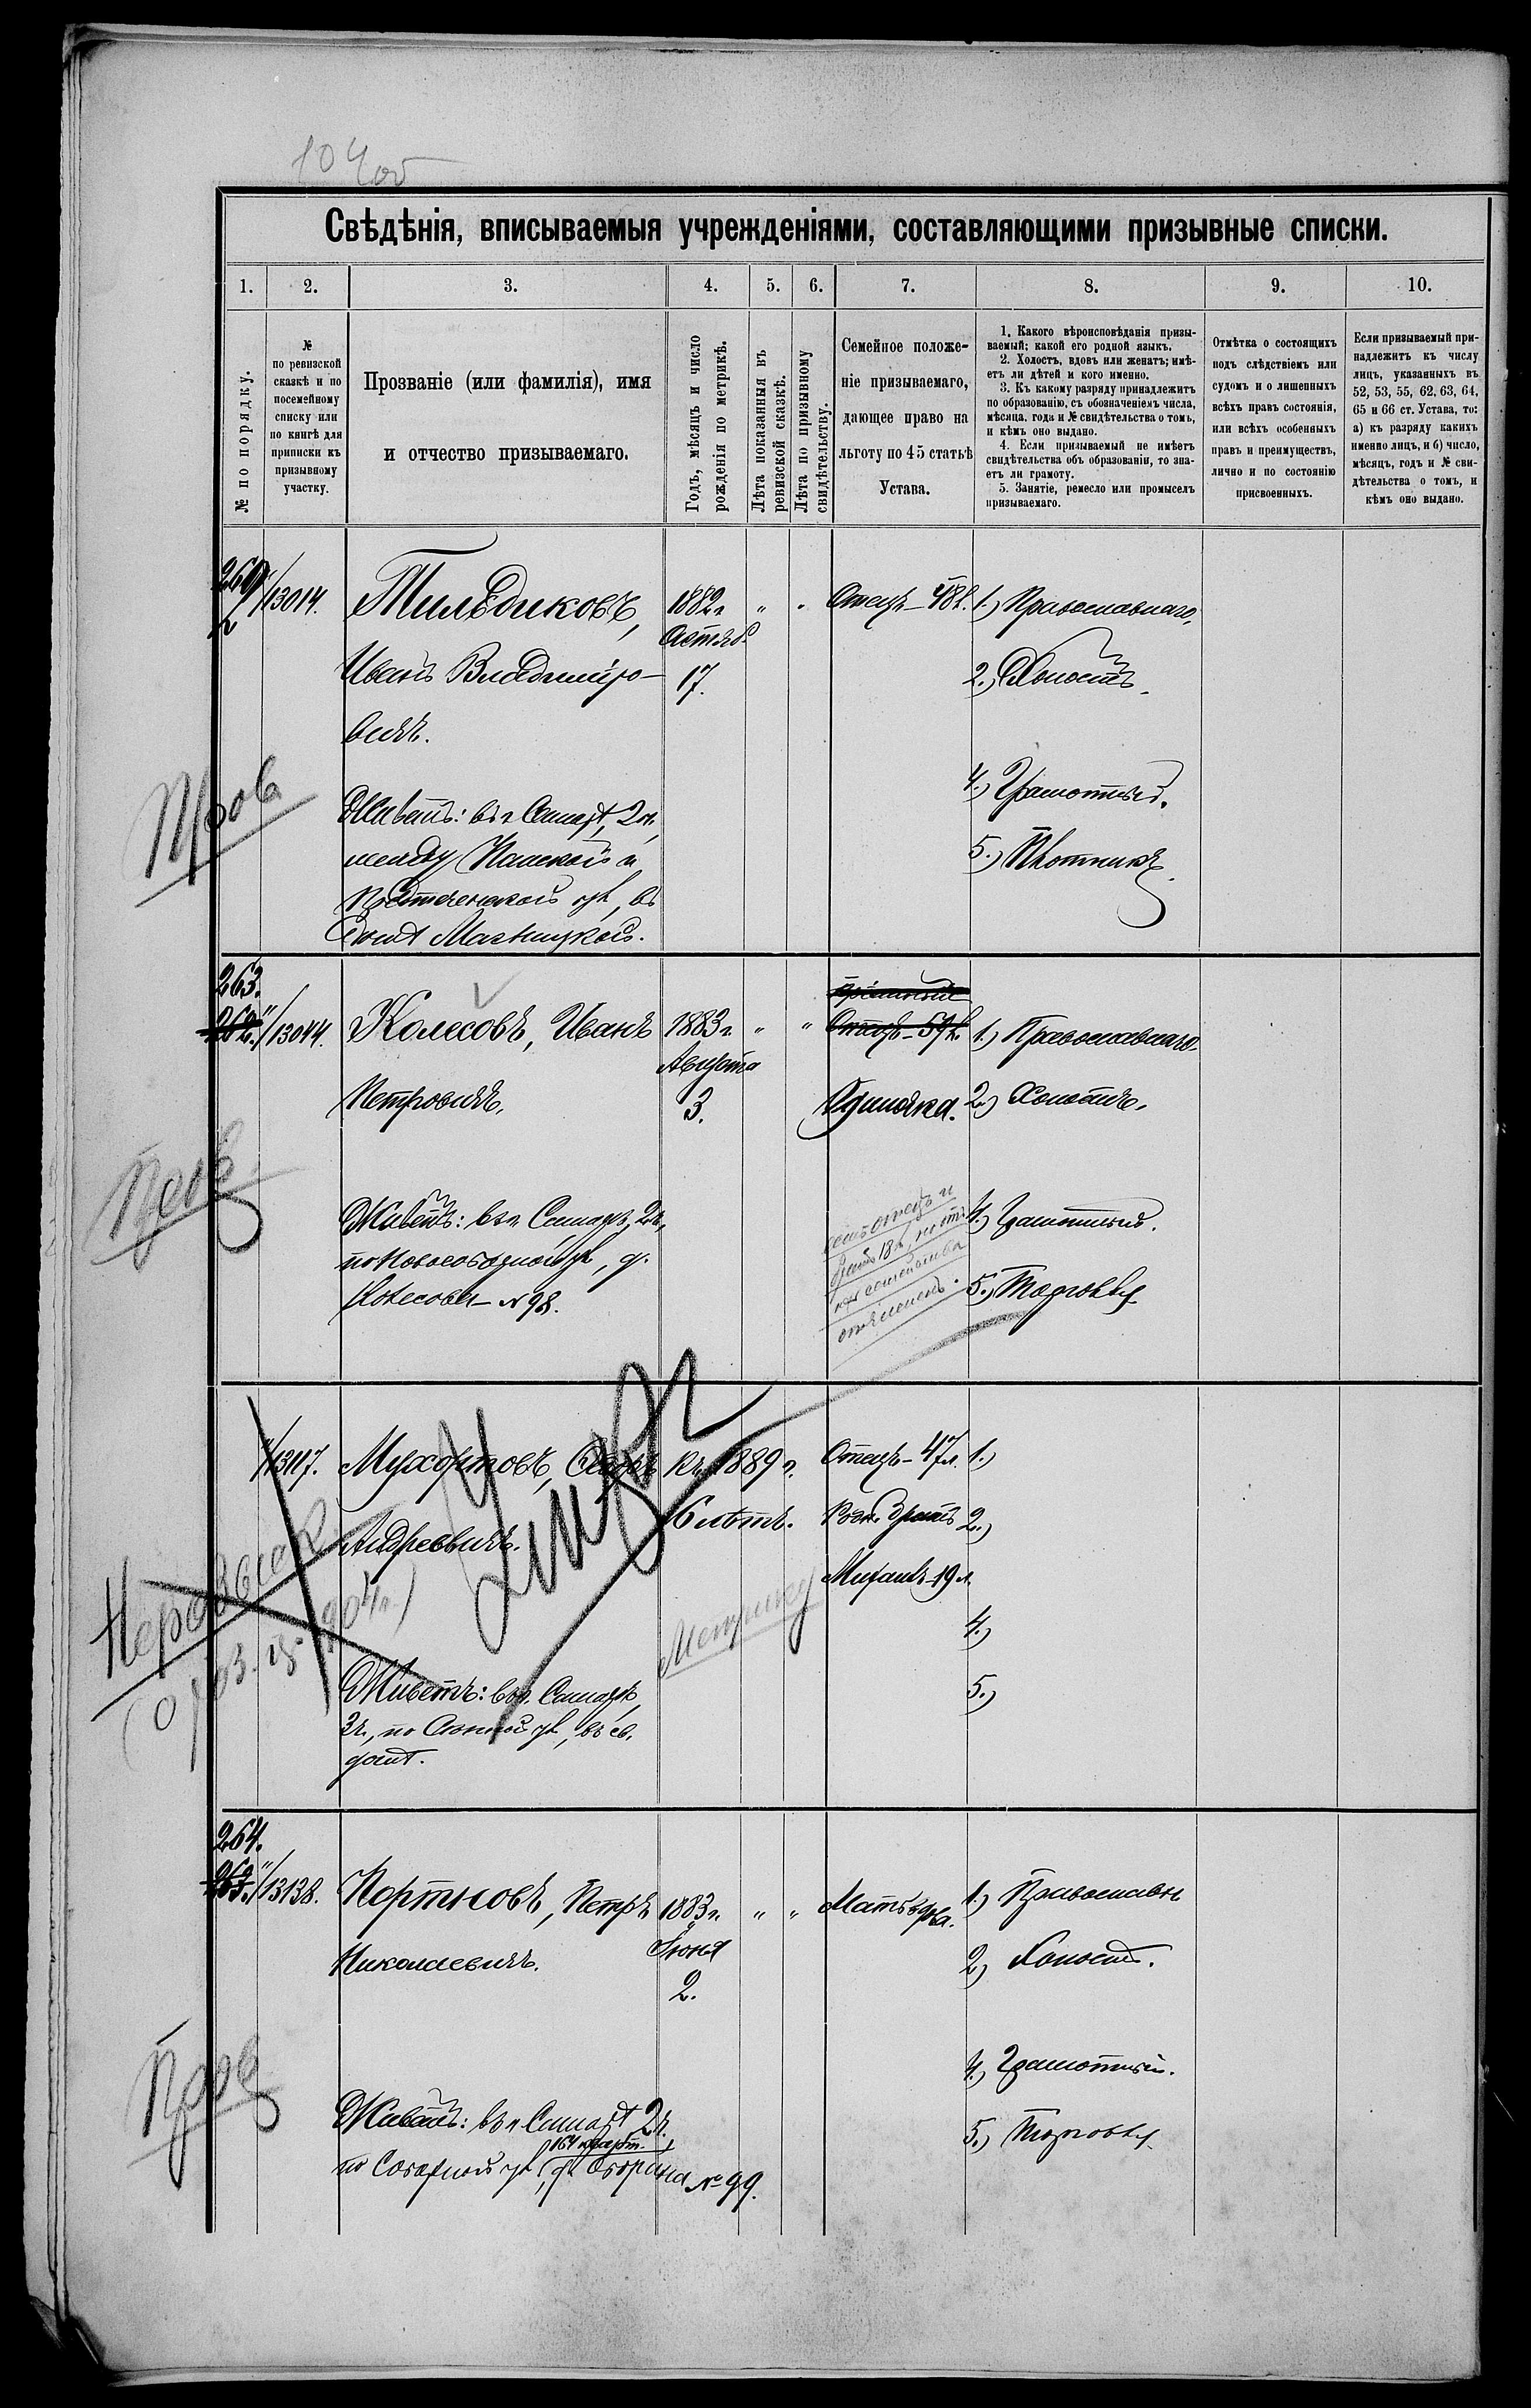 104 об
Свѣдѣнія, вписываемыя учрежденіями, составляющими призывные списки.
1. 2. 3. 4. 5. 6. 7. 8. 9. 10.
№ по порядку.
№
по ревизской
сказкѣ и по
посемейному
списку или
по книгѣ для
приписки къ
призывному
участку.
Прозваніе (или фамилія), имя
и отчество призываемаго.
Годъ, мѣсяцъ и число
рожденія по метрикѣ.
Лѣта показанныя въ
ревизской сказкѣ.
Лѣта по призывному
свидѣтельству.
Семейное положе-
ніе призываемаго,
дающее право на
льготу по 45 статьѣ
Устава.
1. Какого вѣроисповѣданія призы-
ваемый; какой его родной языкъ.
2. Холостъ, вдовъ или женатъ; имѣ-
етъ ли дѣтей и кого именно.
3. Къ какому разряду принадлежитъ
по образованію, съ обозначеніемъ числа,
мѣсяца, года и № свидѣтельства о томъ,
и кѣмъ оно выдано.
4. Если призываемый не имѣетъ
свидѣтельства объ образованіи, то зна-
етъ ли грамоту.
5. Занятіе, ремесло или промыселъ
призываемаго.
Отмѣтка о состоящихъ
подъ слѣдствіемъ или
судомъ и о лишенныхъ
всѣхъ правъ состоянія,
или всѣхъ особенныхъ
правъ и преимуществъ,
лично и по состоянію
присвоенныхъ.
Если призываемый при-
надлежитъ къ числу
лицъ, указанныхъ въ
52, 53, 55, 62, 63, 64,
65 и 66 ст. Устава, то:
а) къ разряду какихъ
именно лицъ, и б) число,
мѣсяцъ, годъ и № сви-
дѣтельства о томъ, и
кѣмъ оно выдано.
13014. 1882 г. " " Отецъ – 48 л. 1.) Православнаго,
Октяб.
Иванъ Владиміро- 17. 2.) Холостъ.
вичъ.
4.) Грамотный.
Живетъ: въ г. Самарѣ, 2 ч.,
между 5.) Плотникъ.
ул., въ
домѣ
263.
13044. Колесовъ, Иванъ 1883 г. " " Отецъ – 59 л. 1.) Православнаго.
Августа
Петровичъ. 3. Одиночка. 2.) Холостъ.
Живетъ: въ г. Самарѣ, 2 ч., 4.) Грамотный.
по Новособорной ул., д.
Колесова – № 98. 5.) Торговля
13117. Мухортовъ, Къ 1889 г. Отецъ – 47 л. 1.)
Андреевичъ. 6 лѣтъ. Родн. братъ 2.)
Михаилъ – 19 л.
Умеръ
Метрику
4.)
Живетъ: въ г. Самарѣ, 5.)
3 ч., по ул., въ св.
домѣ.
264.
13138. Портновъ, Петръ 1883 г. " " Мать вдова. 1.) Православн
Іюня
Николаевичъ. 2. 2.) Холостъ.
4.) Грамотный.
Живетъ: въ г. Самарѣ 2 ч., 5.) Торговля
164 кварт.
по Соборной ул., д. № 99.